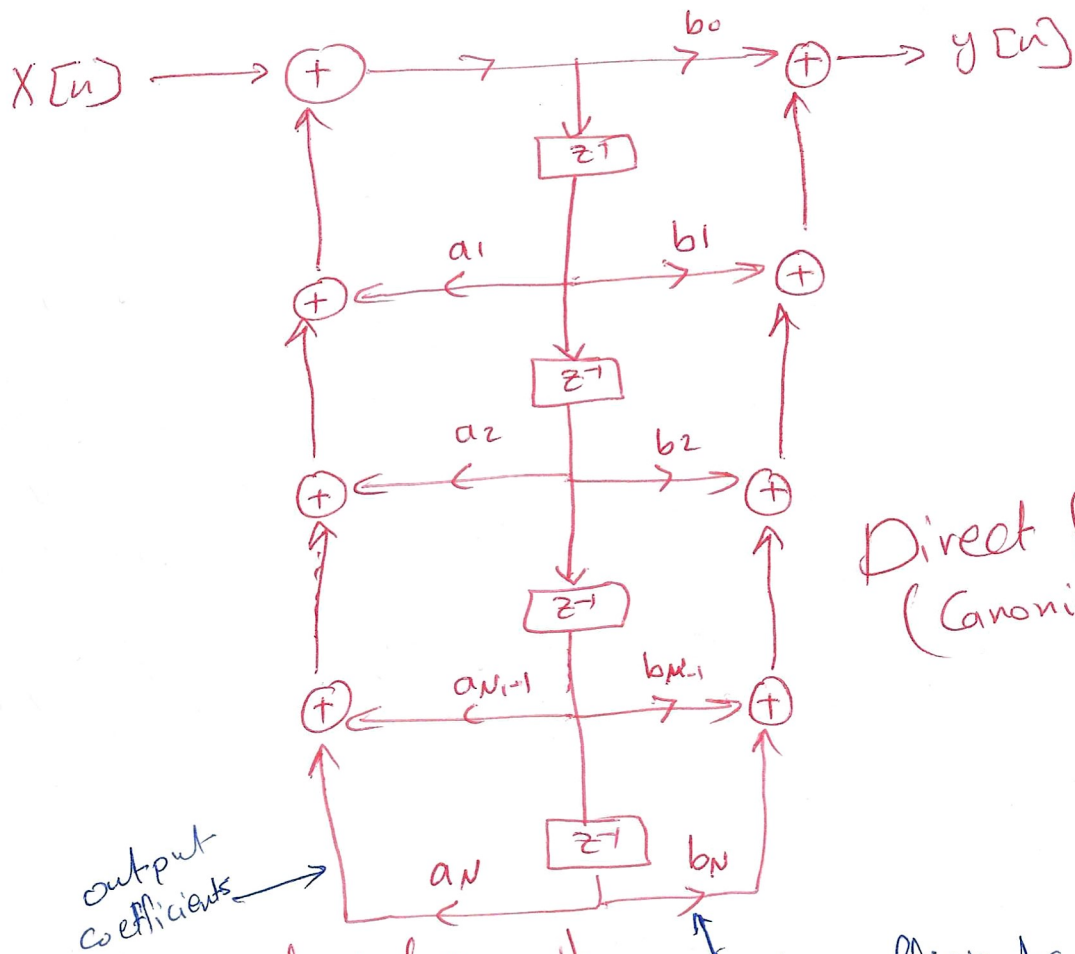 X[n]
+
b0
+
y[n]
z-1
a1
b1
+
+
z-1
a2
b2
+
+
Direct
(Canoni
z-1
aN-1
bN-1
+
+
z-1
output
coefficients
aN
bN